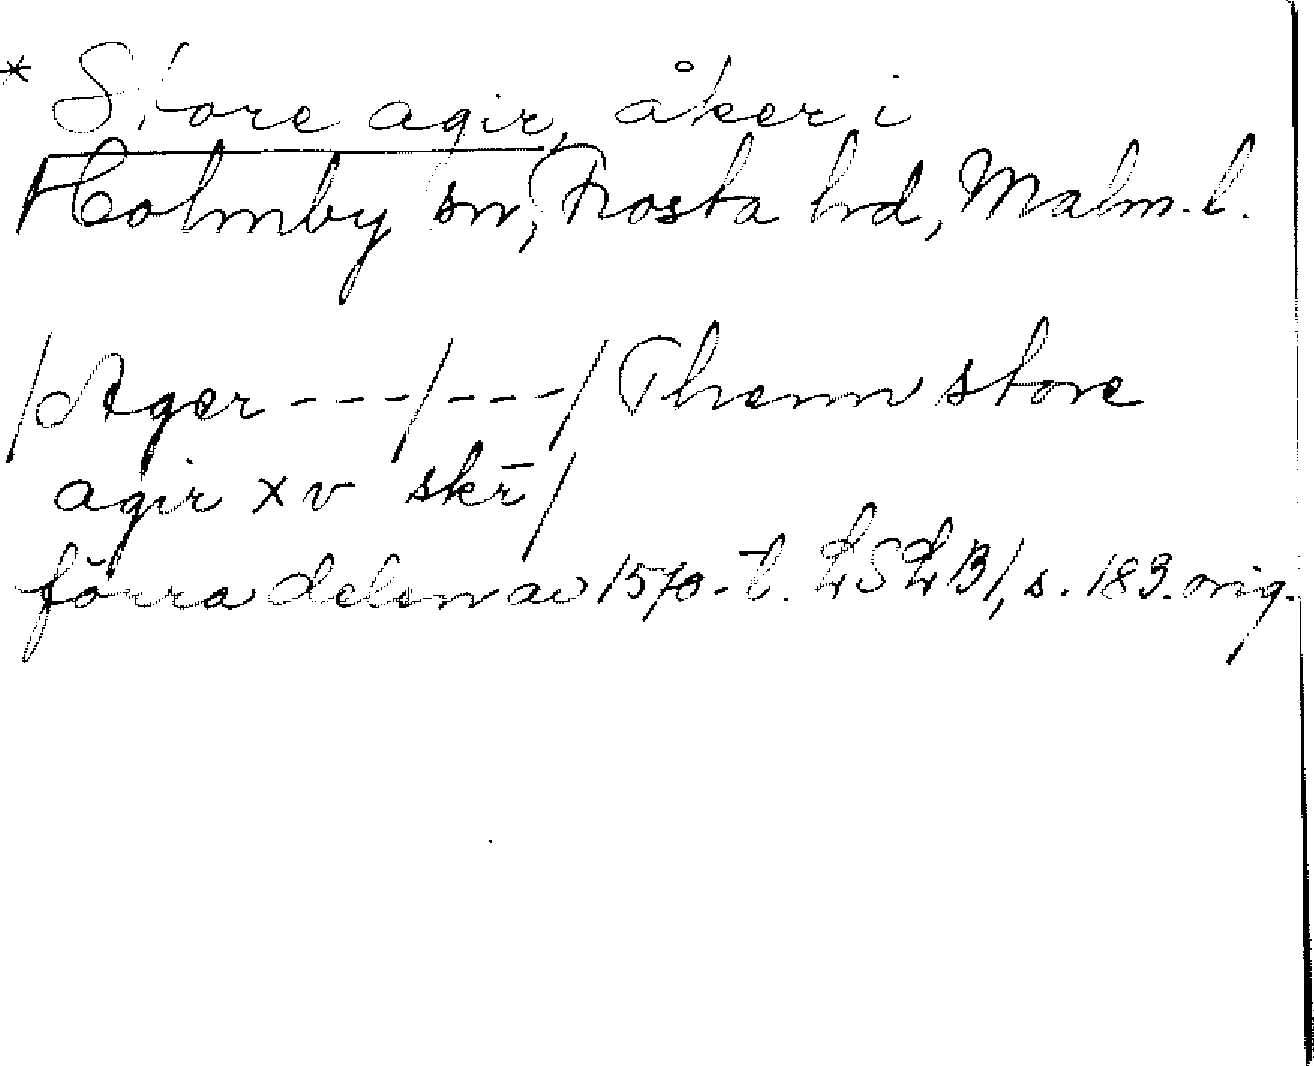 * Store agir, åker i
Holmby sn, Frosta hd, Malm. l.
/Ager - - - / - - - / Thenn store
agir x v skr̄ /
förra delen av 1570-t. LSLB 1, s. 183. orig.